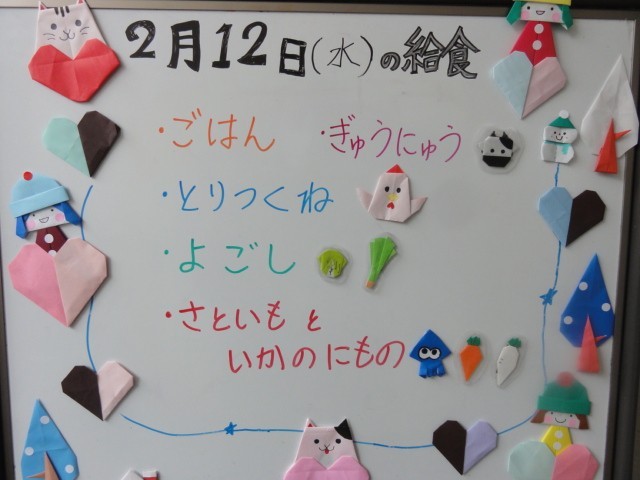 2月12日(水)の給食
・ごはん ・ぎゅうにゅう
・とりつくね
・よごし
・さといもと
いかのにもの